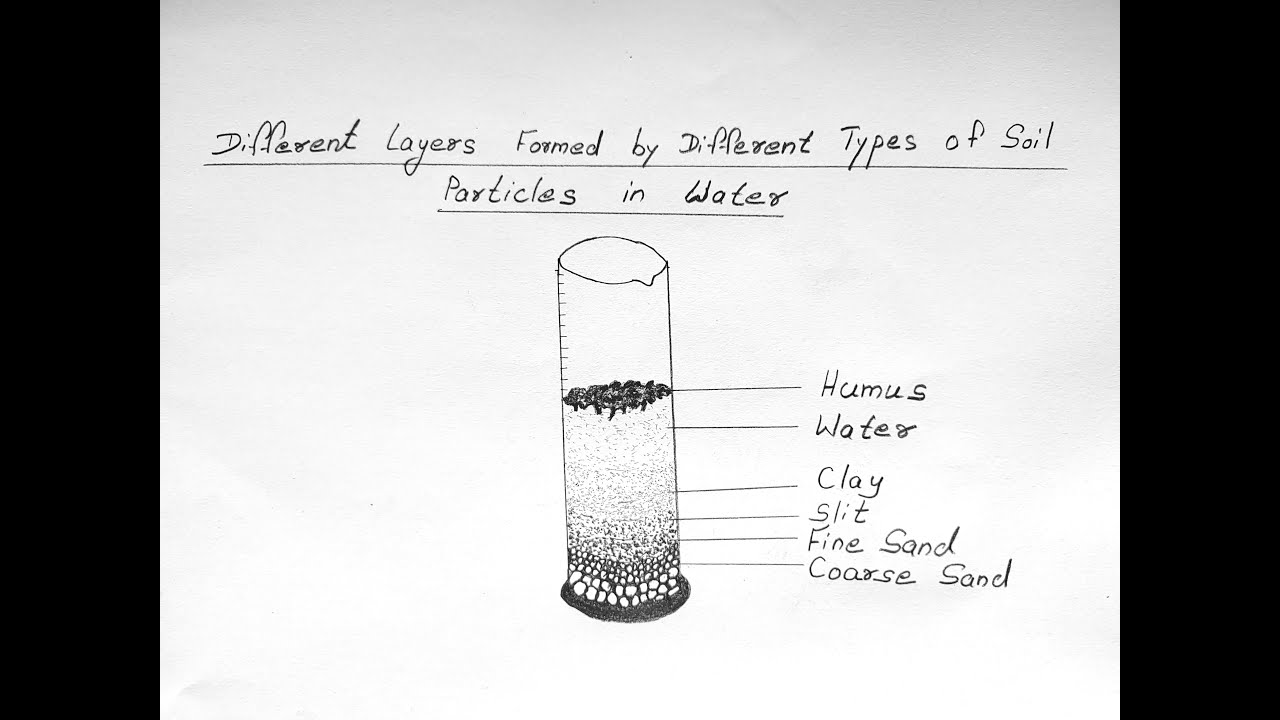 Different Layers Formed by Different Types of Soil
Particles in Water
Humus
Water
Clay
Slit
Fine Sand
Coarse Sand